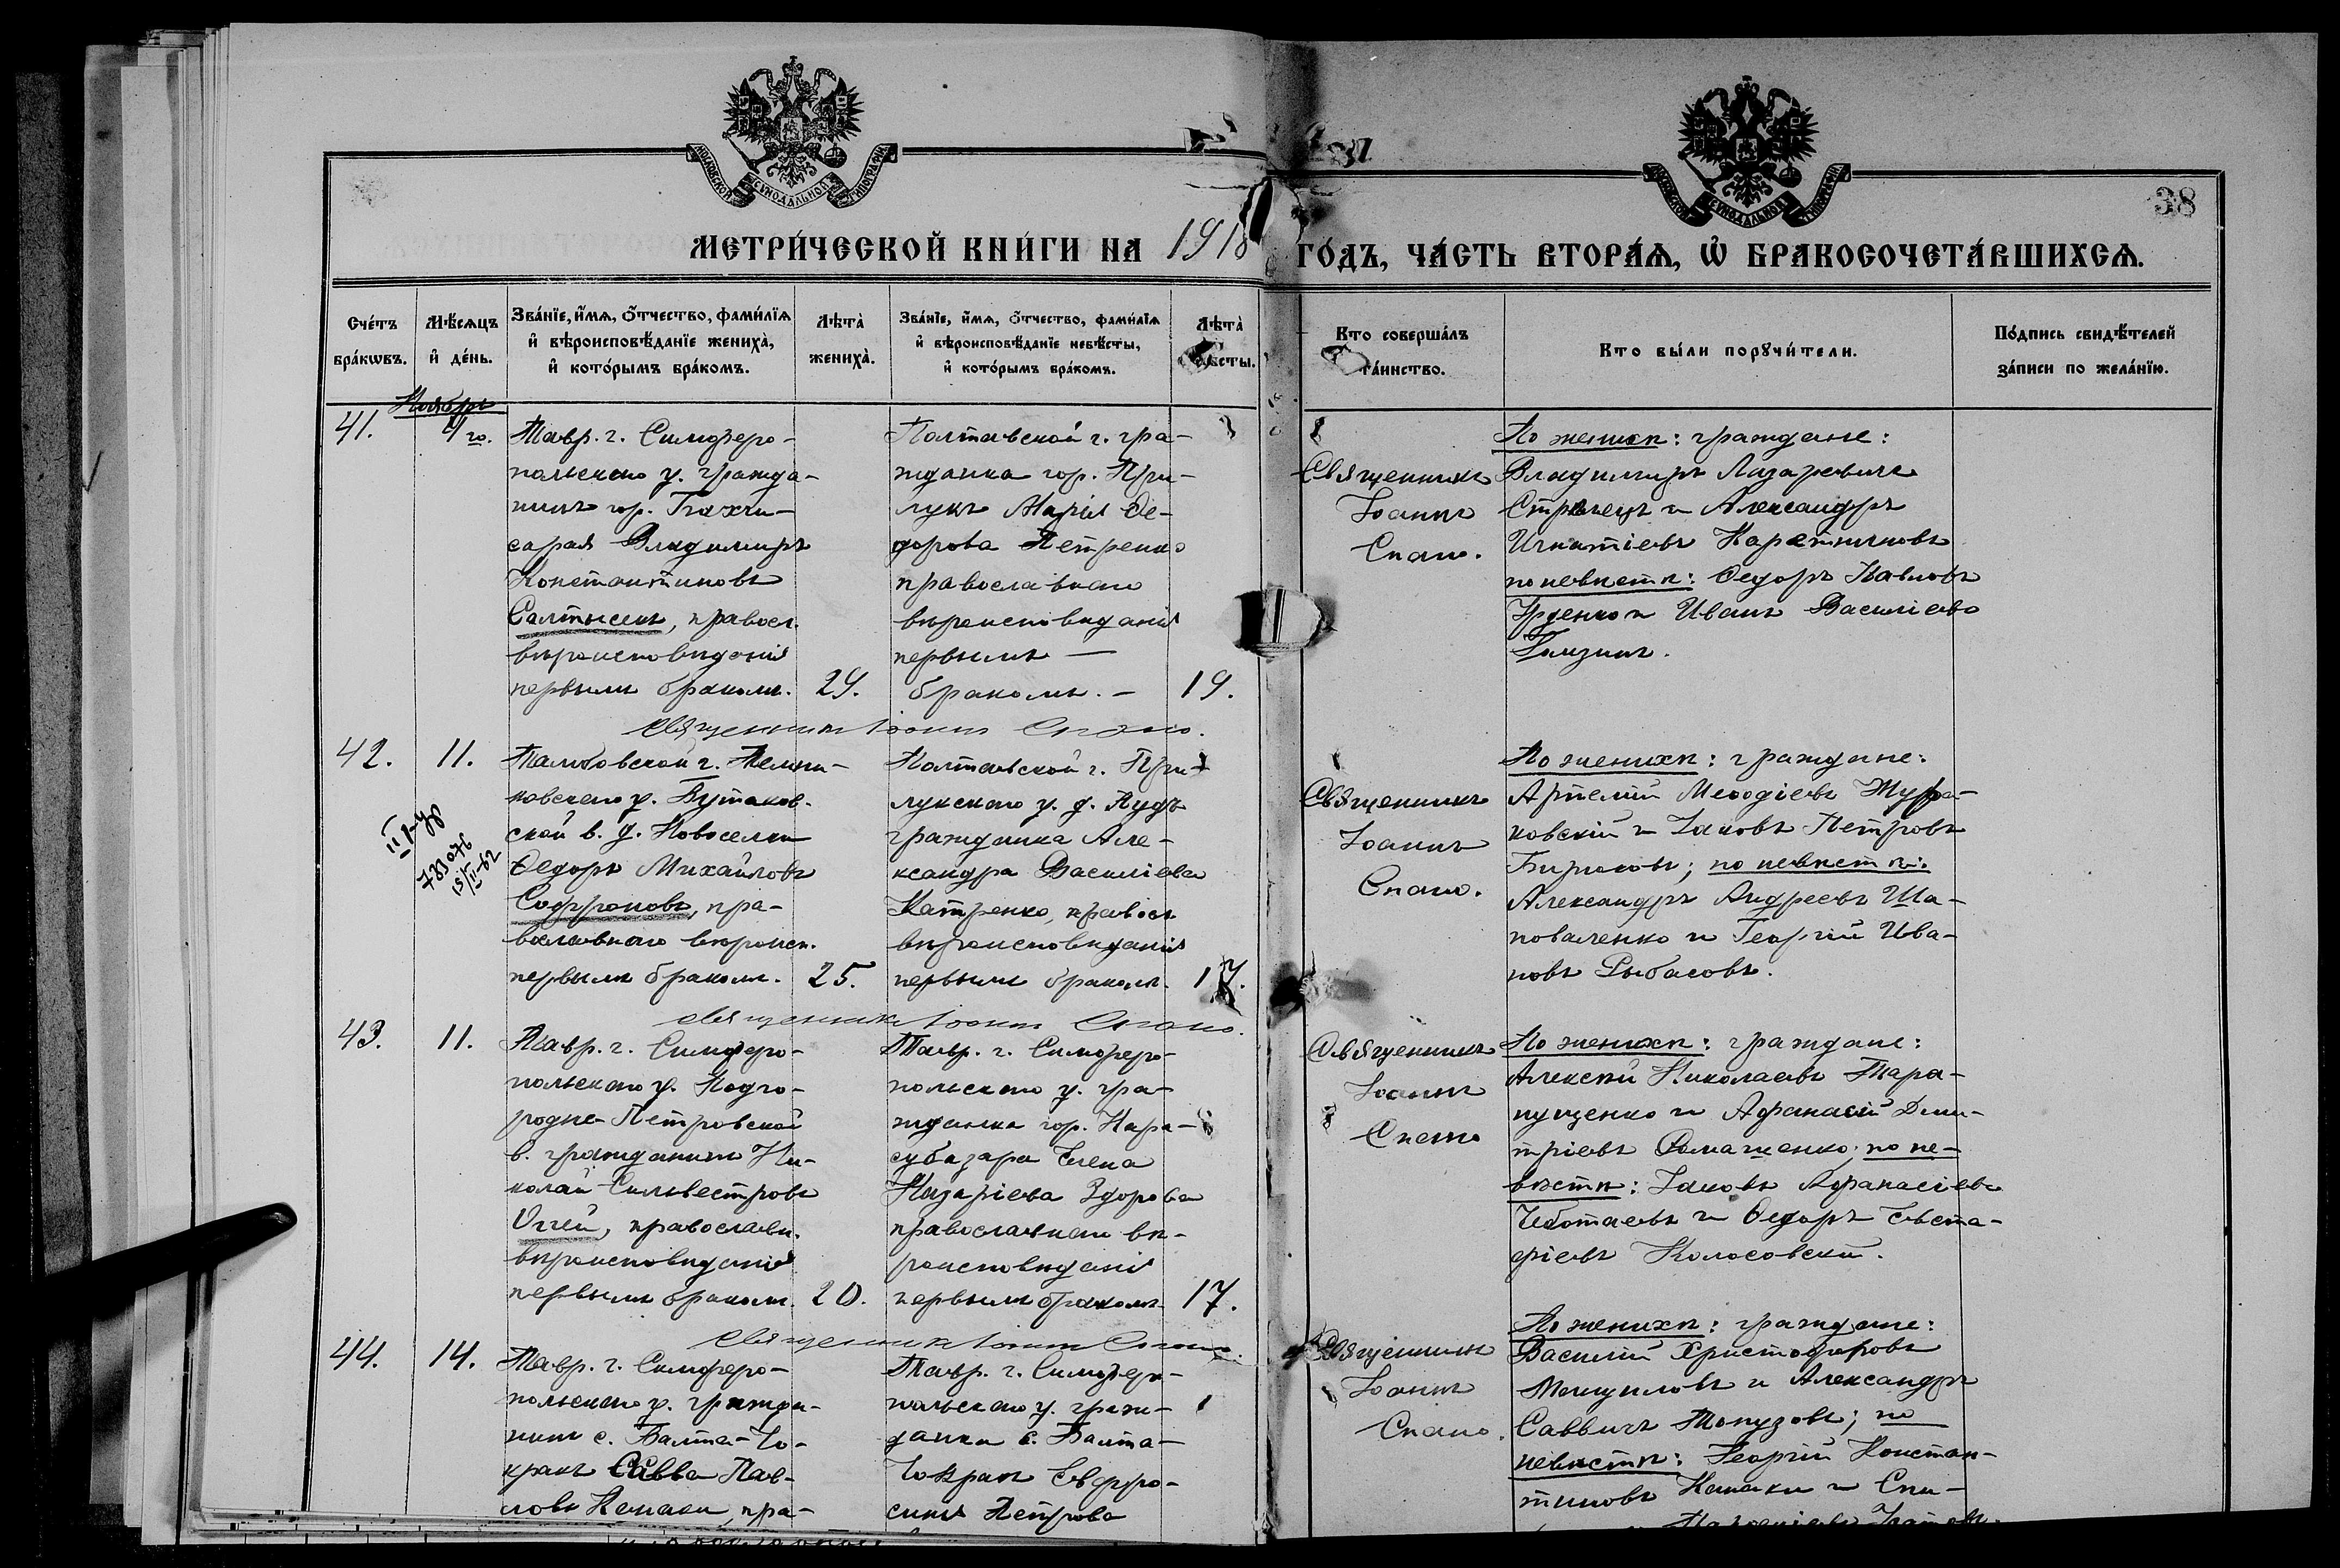 МОСКОВСКОЙ СѴНОДАЛЬНОЙ ТИПОГРАФІИ
МОСКОВСКОЙ СѴНОДАЛЬНОЙ ТИПОГРАФІИ
38
МЕТРИ́ЧЕСКОЙ КНИ́ГИ НА 1918 ГО́ДЪ, ЧА́СТЬ ВТОРА́Ѧ, Ѽ БРАКОСОЧЕТА́ВШИХСѦ.
Сче́тъ бра́кѡвъ.
Мѣ́сѧцъ и҆ де́нь.
Зва́нїе, и҆́мѧ, ѻ҆́тчество, фами́лїѧ
и҆ вѣроисповѣ́данїе жениха̀,
и҆ кото́рымъ бра́комъ.
Лѣта̀ жениха̀.
Зва́нїе, и҆́мѧ, ѻ҆́тчество, фами́лїѧ
и҆ вѣроисповѣ́данїе невѣ́сты,
и҆ кото́рымъ бра́комъ.
Лѣта̀
Кто соверша́лъ
та́инство.
Кто бы́ли порꙋчи́тели.
По́дпись свидѣ́телей
за́писи по жела́нїю.
Ноябрь
41.
4 го.
Тавр. г. Симферо-
польскаго у. гражда-
нинъ гор. Бахчи-
сарая Владимиръ
Константиновъ
Салтысекъ, правосл.
вѣроисповѣданія
первымъ бракомъ. 29.
Полтавской г. гра-
жданка гор. При-
лукъ Марія Ѳе-
дорова Петренко
православнаго
вѣроисповѣданія
первымъ —
бракомъ. — 19.
Священникъ
Іоаннъ
Спано.
По женихѣ: граждане:
Владимиръ Лазаревичъ
Стрѣлецъ и Александръ
Игнатіевъ Каретниковъ
по невѣстѣ: Ѳедоръ Павловъ
и Иванъ Василіевъ
священникъ Іоаннъ Спано.
42.
11.
II
783076
15/II-62
Тамбовской г. Темни-
ковскаго у. Бутаков-
ской в. д. Новоселки
Ѳедоръ Михайловъ
Софроновъ, пра-
вославнаго вѣроисп.
первымъ бракомъ. 25.
Полтавской г. При-
лукскаго у. д.
гражданка Але-
ксандра Василіева
Катренко, правосл
вѣроисповѣданія
первымъ бракомъ. 17.
Священникъ
Іоаннъ
Спано.
По женихѣ: граждане:
Артемій Меѳодіевъ Жура-
ковскій и Іаковъ Петровъ
Бирюковъ; по невѣстѣ:
Александръ Андреевъ Ша-
поваленко и Георгій Ива-
новъ Рыбасовъ.
священникъ Іоаннъ Спано.
43.
11.
Тавр. г. Симферо-
польскаго у. Подго-
родне-Петровской
в. гражданинъ Ни-
колай Сильвестровъ
православн.
вѣроисповѣданія
первымъ бракомъ. 20.
Тавр. г. Симферо-
польскаго у. гра-
жданка гор. Кара-
субазара Елена
Назаріева Здорова
православнаго вѣ-
роисповѣданія
первымъ бракомъ 17.
Священникъ
Іоаннъ
Спано
По женихѣ: граждане:
Алексѣй Николаевъ Тара-
пущенко и Афанасій Дми-
тріевъ Ромащенко; по не-
вѣстѣ: Іаковъ Афанасіевъ
Чеботаевъ и Ѳедоръ Евста-
фіевъ Колосовскій.
священникъ Іоаннъ Спано.
44.
14.
Тавр. г. Симферо-
польскаго у. гражда-
нинъ с. Балта-Чо-
кракъ Савва Пав-
ловъ Канаки, пра-
Тавр. г. Симферо-
польскаго у. граж-
данка с. Балта-
Чокракъ Евфро-
синія Петрова
Священникъ
Іоаннъ
Спано.
По женихѣ: граждане:
Василій Христофоровъ
и Александръ
Саввичъ Топузовъ; по
невѣстѣ: Георгій Констан-
тиновъ Канаки и Спи-